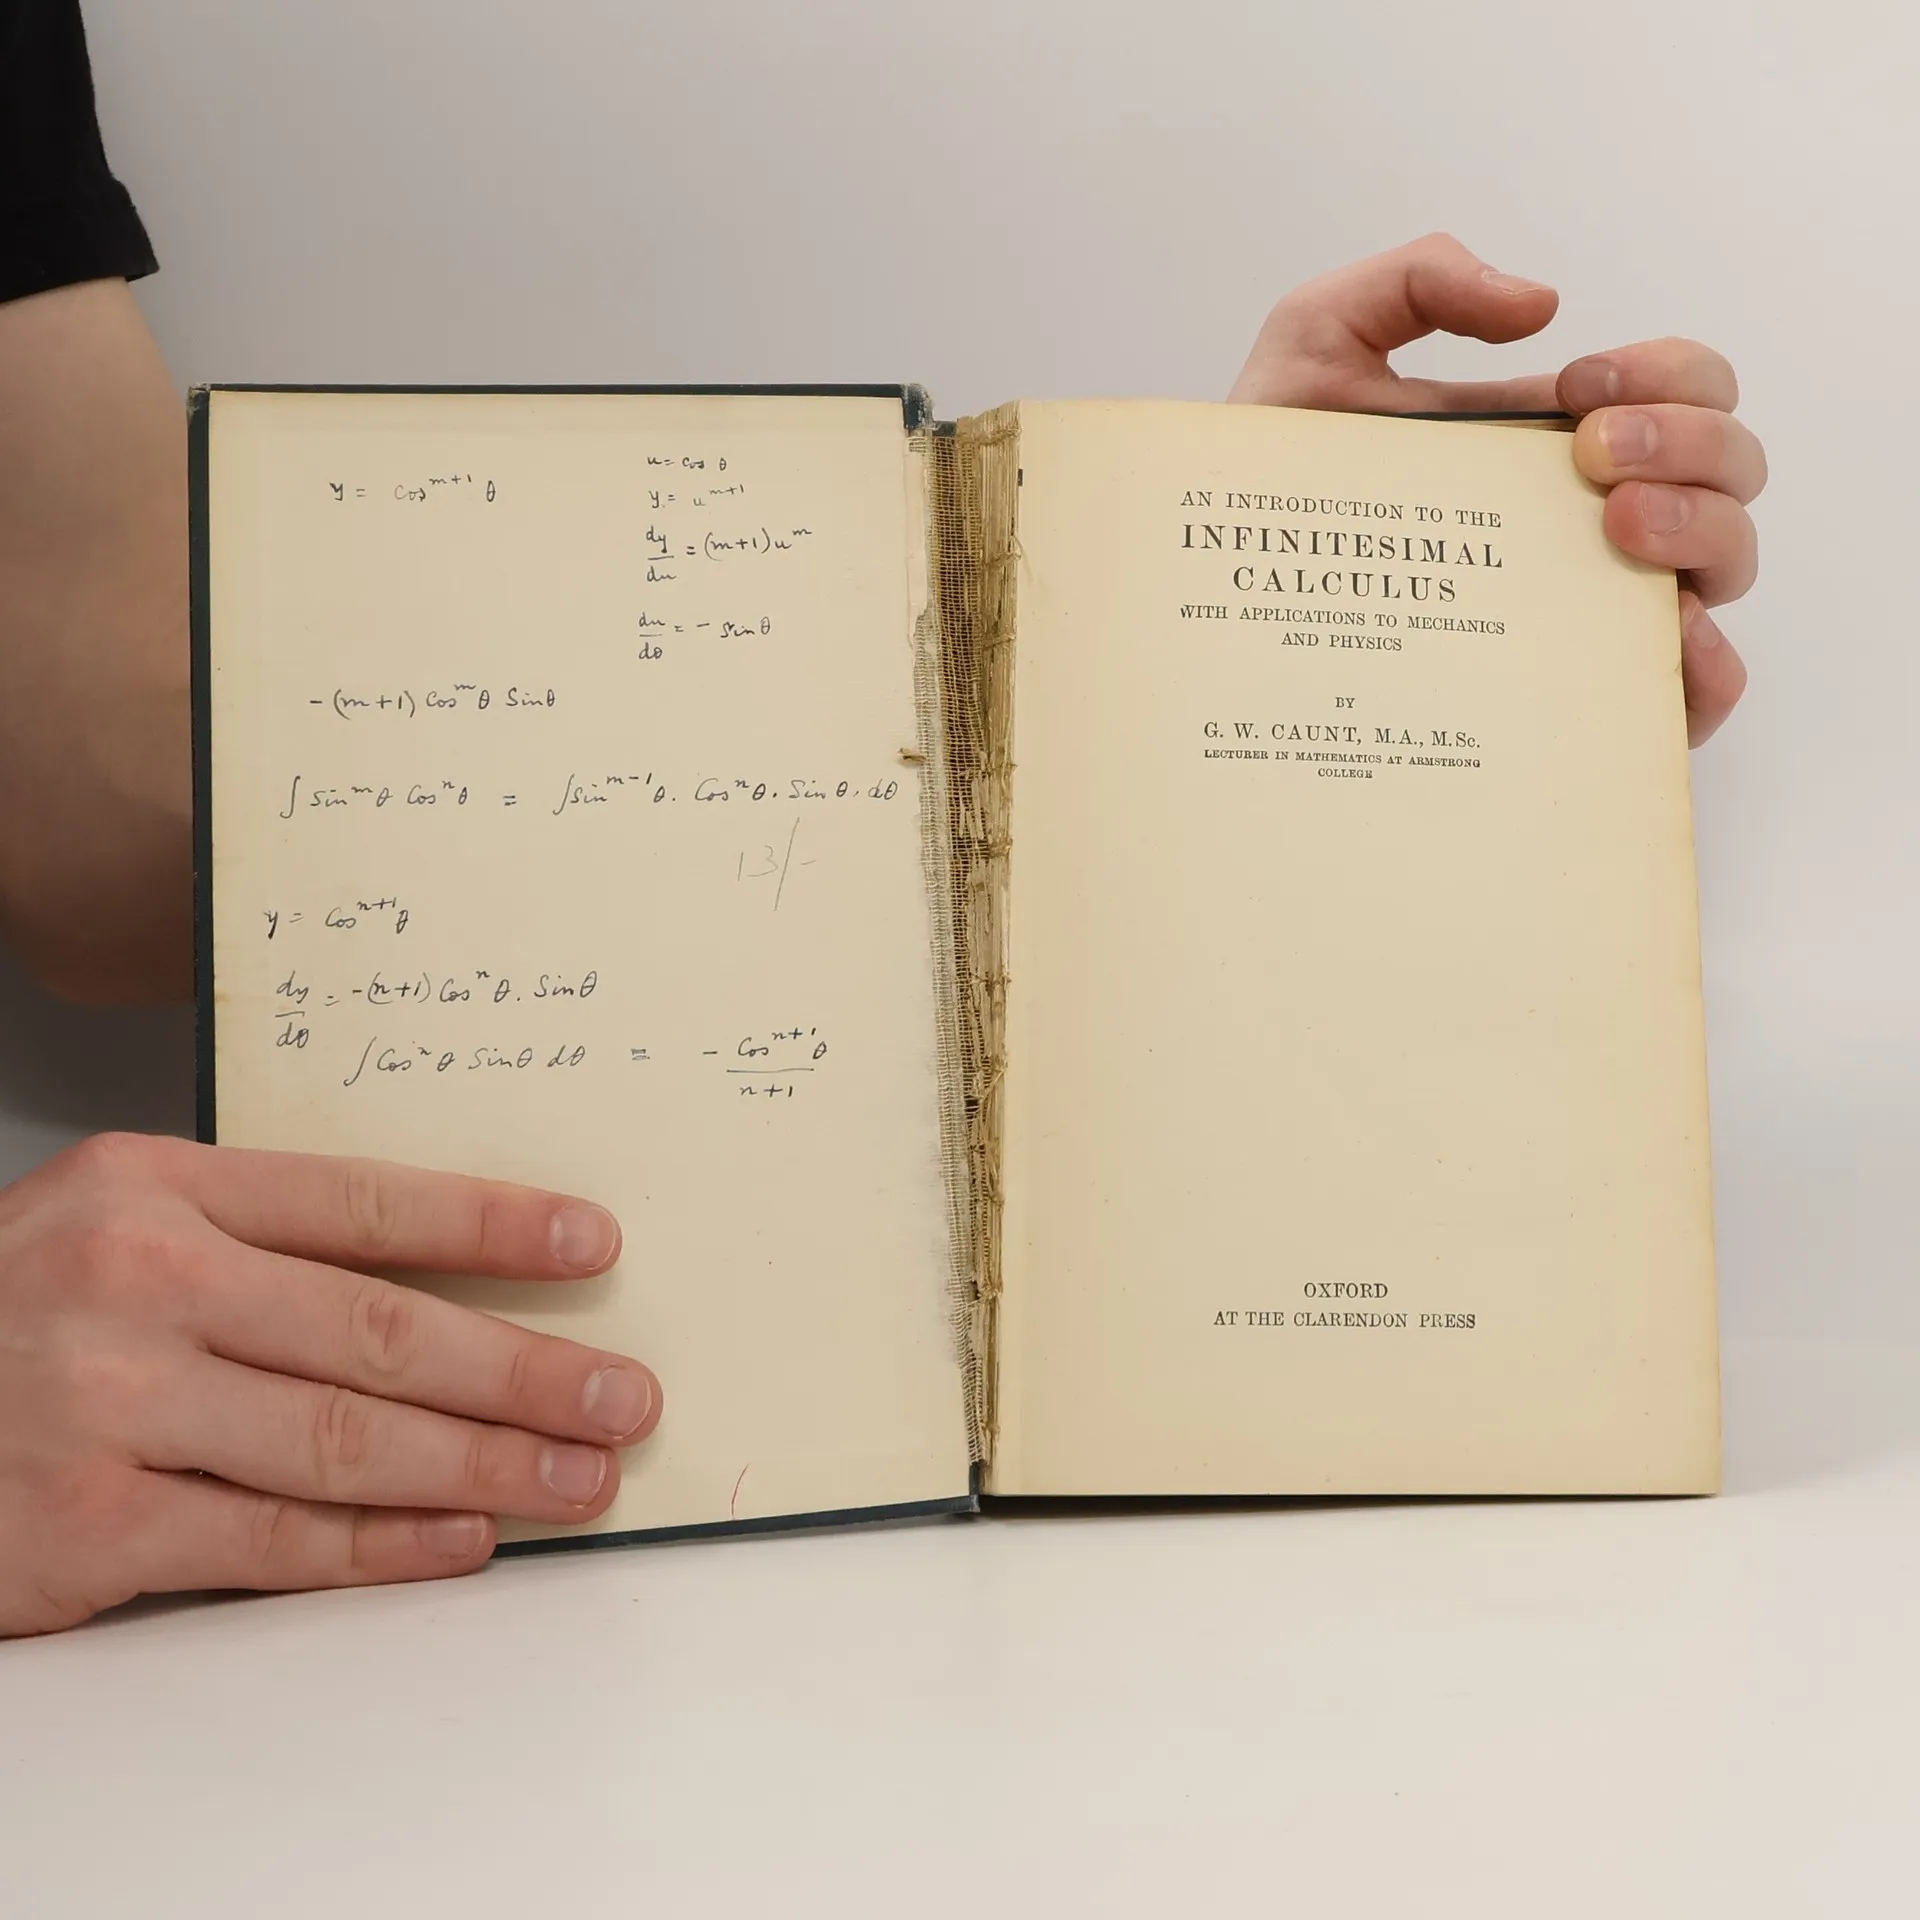 u = cos θ
y = cos^{m+1} θ
y = u^{m+1}
dy/du = (m+1)u^m
du/dθ = - sin θ
-(m+1) Cos^m θ Sin θ
∫ Sin^m θ Cos^n θ = ∫ Sin^{m-1} θ. Cos^n θ. Sin θ. dθ
13/-
y = Cos^{n+1} θ
dy/dθ = -(n+1) Cos^n θ. Sin θ
∫ Cos^n θ Sin θ dθ = - Cos^{n+1} θ / n+1
AN INTRODUCTION TO THE
INFINITESIMAL
CALCULUS
WITH APPLICATIONS TO MECHANICS
AND PHYSICS
BY
G. W. CAUNT, M.A., M.Sc.
LECTURER IN MATHEMATICS AT ARMSTRONG
COLLEGE
OXFORD
AT THE CLARENDON PRESS